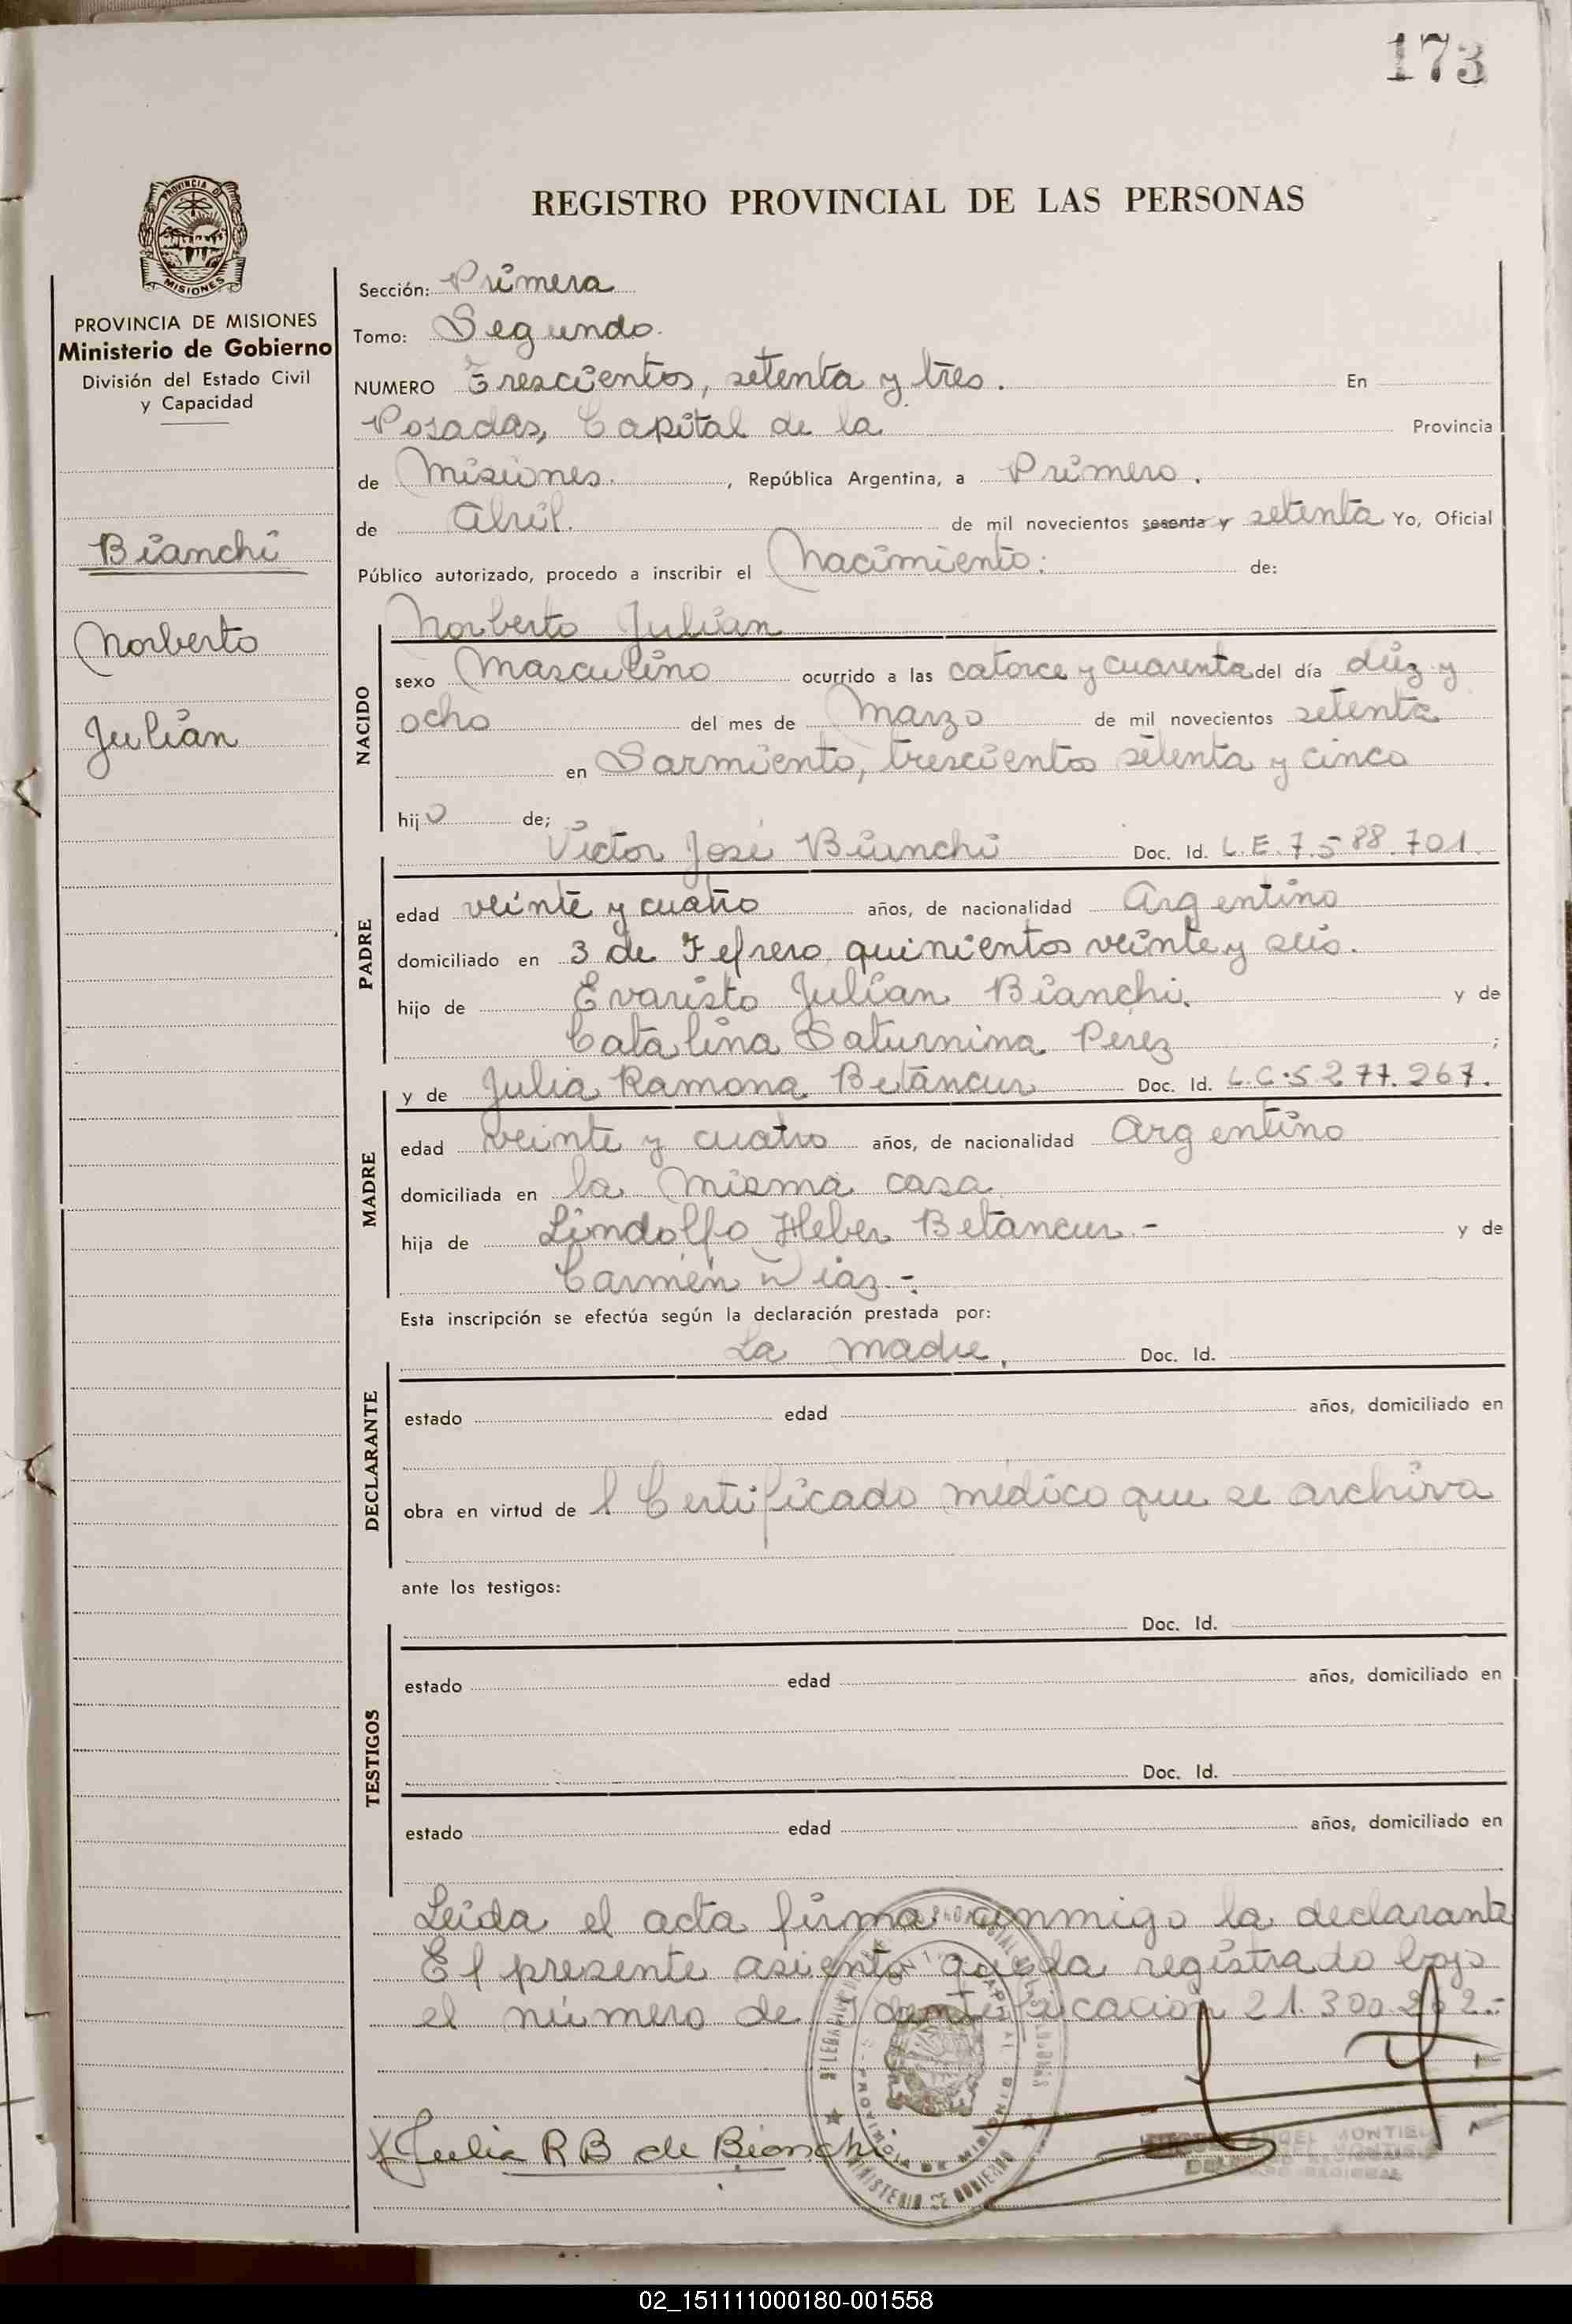 173
PROVINCIA DE
MISIONES
PROVINCIA DE MISIONES
Ministerio de Gobierno
División del Estado Civil
y Capacidad
Bianchi
Norberto
Julián
REGISTRO PROVINCIAL DE LAS PERSONAS
Sección: Primera
Tomo: Segundo.
NUMERO Trescientos, setenta y tres. En
Posadas, Capital de la Provincia
de Misiones. , República Argentina, a Primero.
de Abril. de mil novecientos sesenta y setenta Yo, Oficial
Público autorizado, procedo a inscribir el Nacimiento: de:
Norberto Julián
NACIDO
sexo Masculino ocurrido a las catorce y cuarenta del día diez y
ocho del mes de Marzo de mil novecientos setenta
en Sarmiento, trescientos setenta y cinco
hijo de;
Victor José Bianchi Doc. Id. L.E. 7.588.701.
PADRE
edad veinte y cuatro años, de nacionalidad Argentino
domiciliado en 3 de Febrero, quinientos veinte y seis.
hijo de Evaristo Julián Bianchi. y de
Catalina Saturnina Perez ;
y de Julia Ramona Betancur Doc. Id. L.C. 5.277.267.
MADRE
edad veinte y cuatro años, de nacionalidad Argentino
domiciliada en la misma casa
hija de Lindolfo Heber Betancur.- y de
Carmen Diaz.-
Esta inscripción se efectúa según la declaración prestada por:
La madre, Doc. Id.
DECLARANTE
estado edad años, domiciliado en
obra en virtud de l Certificado médico que se archiva
ante los testigos:
Doc. Id.
TESTIGOS
estado edad años, domiciliado en
Doc. Id.
estado edad años, domiciliado en
Leida el acta firma conmigo la declarante
El presente asiento queda registrado bajo
el número de Identificación 21.300.262.-
Julia R B de Bianchi
ANGEL MONTIEL
02_151111000180-001558